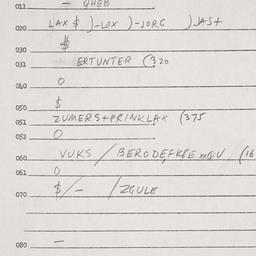 011 — QHEB
020 LAX $ )-LOX )-JORG )JAST
030 $
031 ERTUNTER (320
040 O
050 $
051 ZUMERS+PRINKLAX (375
052 O
060 VUKS / BERODEFKPE xxQV (16
061 O
070 $/- /ZGULE
080 —